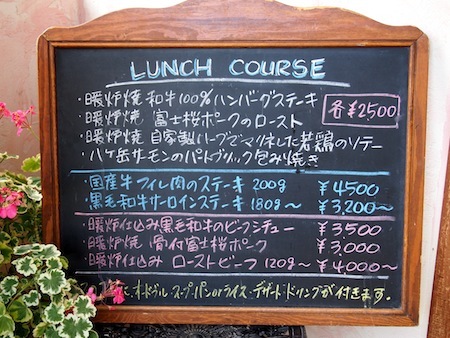 LUNCH COURSE
・暖炉焼 和牛100%ハンバーグステーキ
・暖炉焼 富士桜ポークのロースト
各¥2500
・暖炉焼 自家製ハーブでマリネした若鶏のソテー
・八ヶ岳サーモンのパートブリック包み焼き
・国産牛フィレ肉のステーキ 200g ¥4500
・黒毛和牛サーロインステーキ 180g〜 ¥3,200〜
・暖炉仕込み黒毛和牛のビーフシチュー ¥3500
・暖炉焼 骨付富士桜ポーク ¥3,000
・暖炉仕込み ローストビーフ 120g〜 ¥4,000〜
に、オードブル・スープ・パンorライス・デザート・ドリンクが付きます。